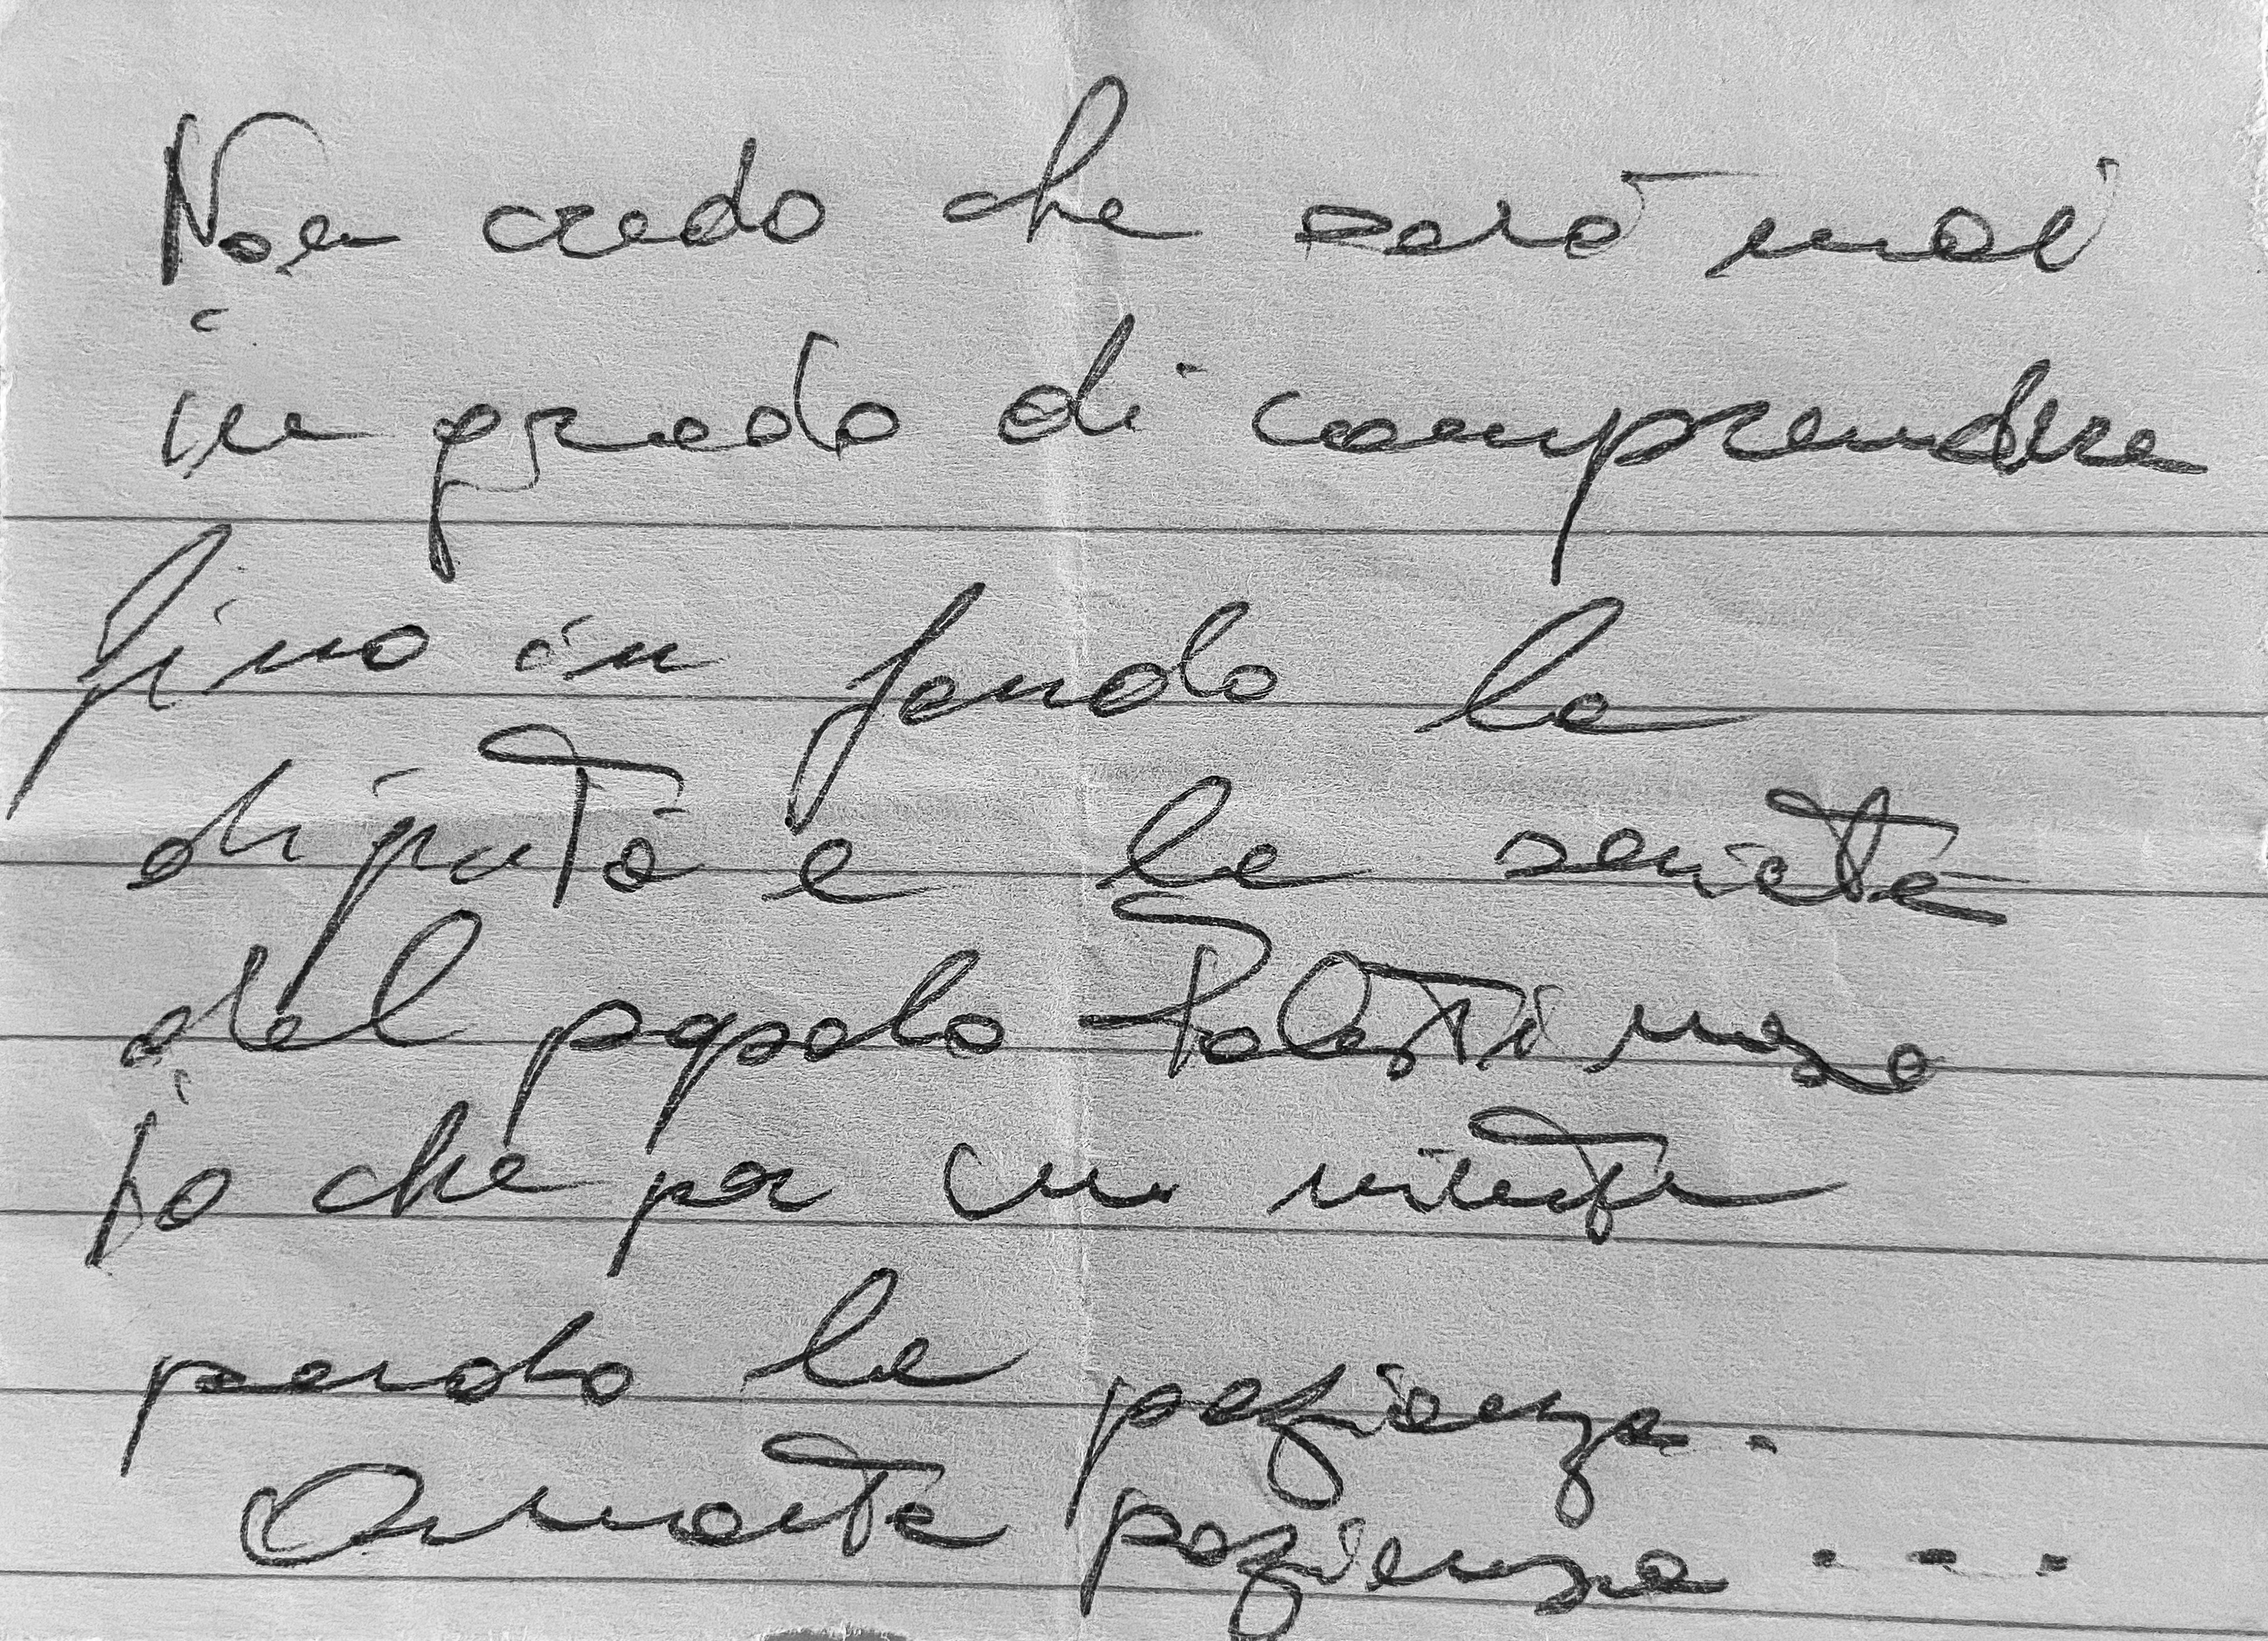 Non credo che sarò mai
in grado di comprendere
fino in fondo la
dignità e la serietà
del popolo Palestinese
io che per un
perdo la pazienza.
Armate pazienza ...